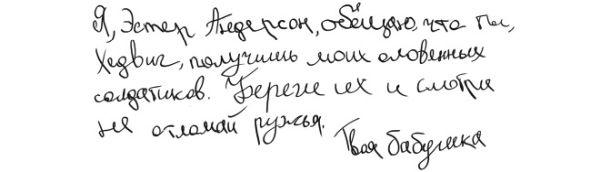 Я, Эстер Андерсон, обещаю, что ты,
Хедвиг, получишь моих оловянных
солдатиков. Береги их и смотри
не отломай ружья.
Твоя бабушка